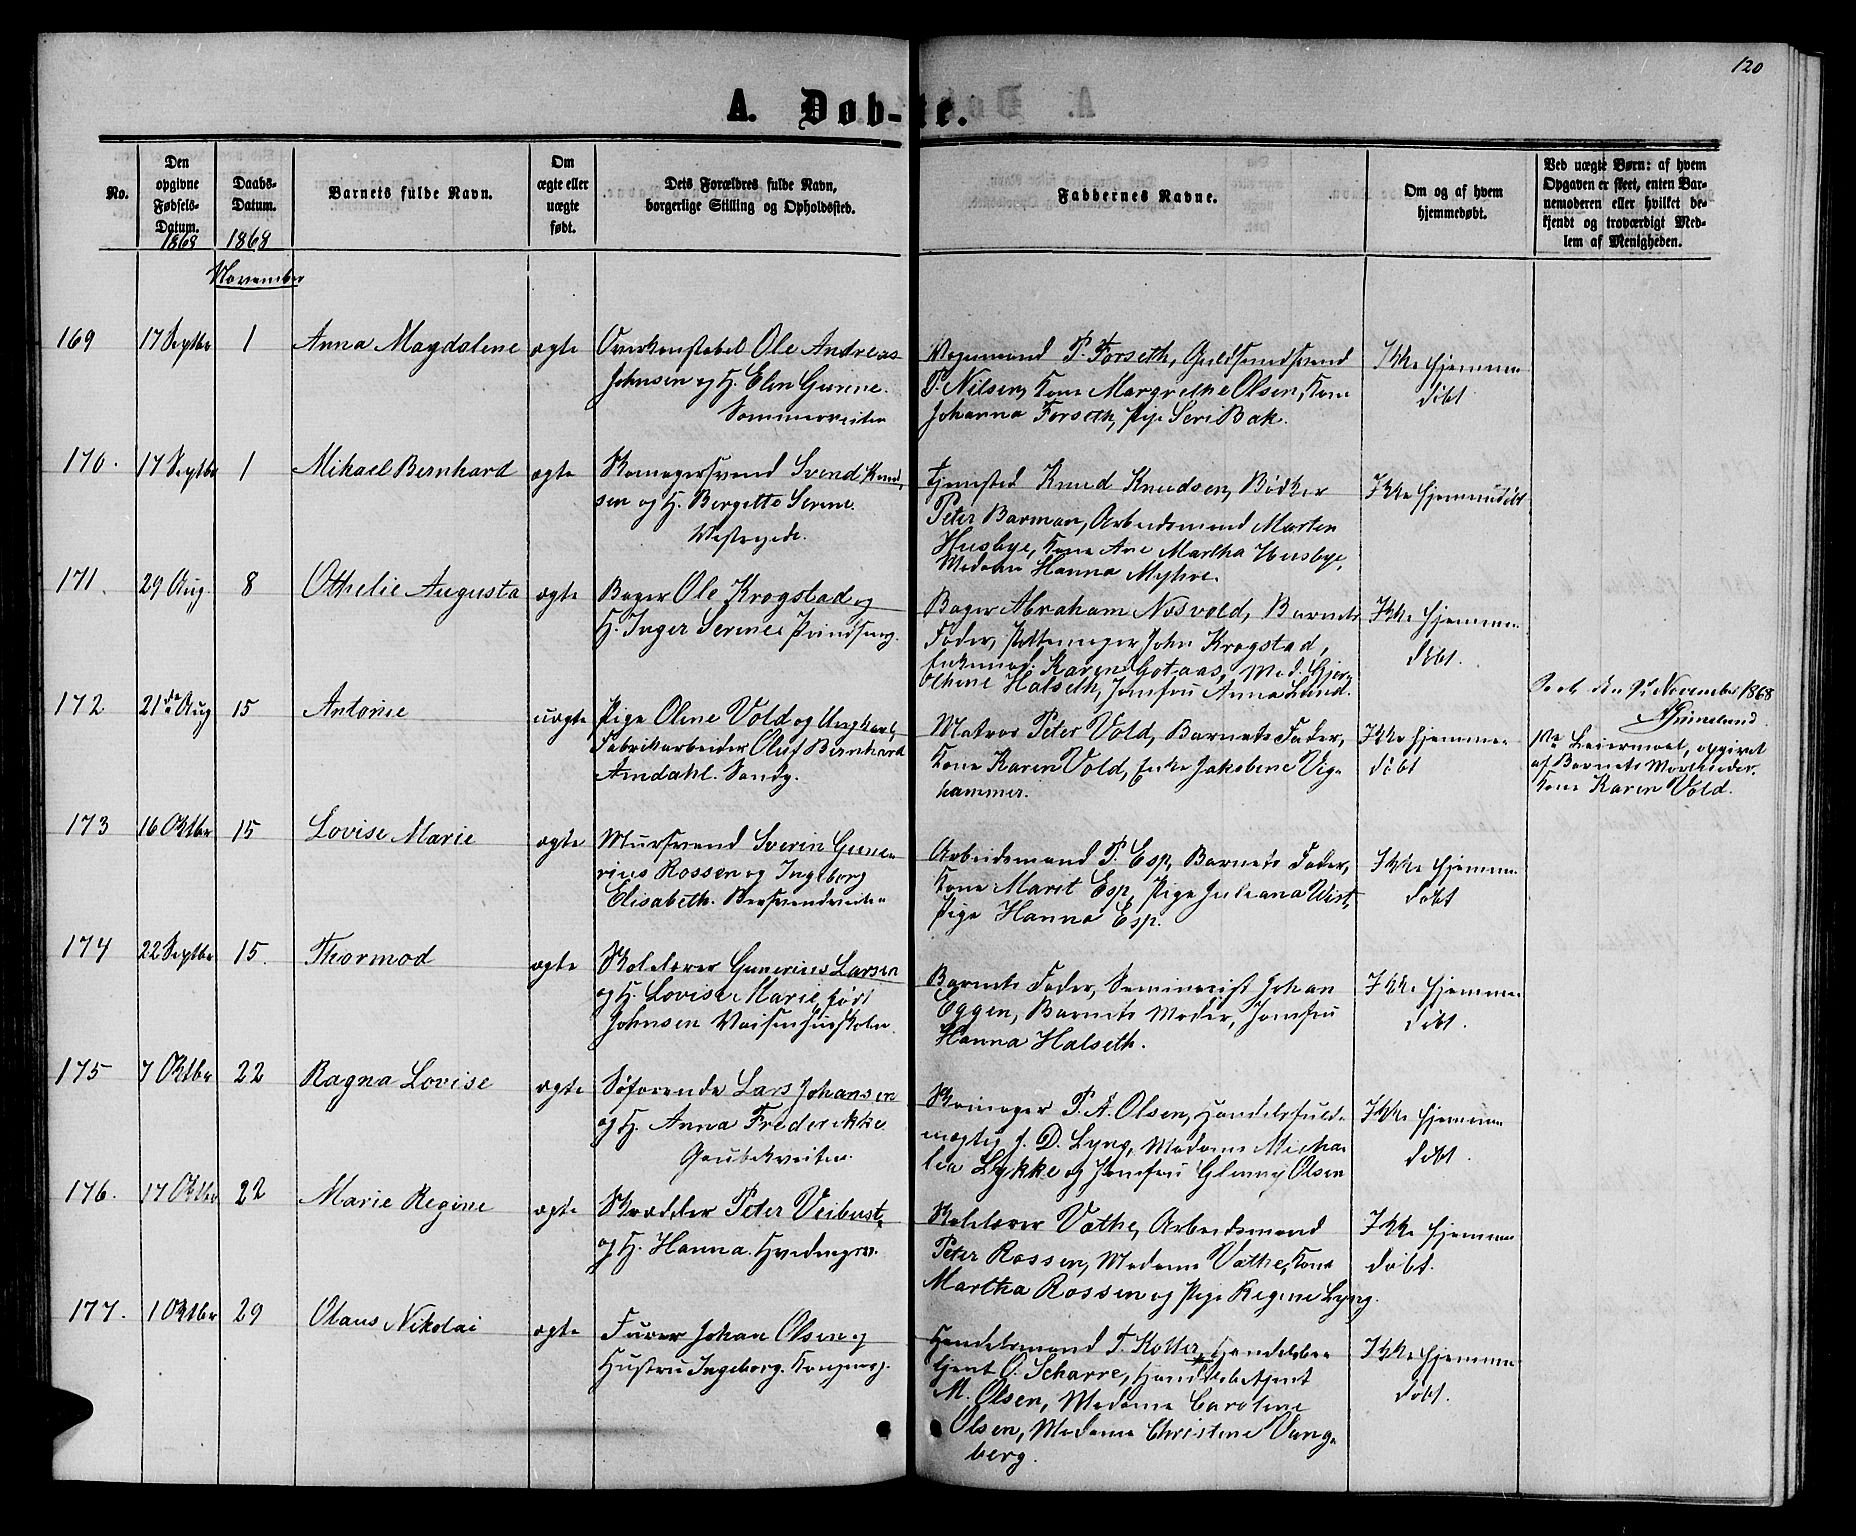 120
A. Døb-te.
No.
Den opgivne Fødsels-Datum.
1868
Daabs-Datum.
1868
Barnets fulde Navn.
Om ægte eller uægte født.
Dets Forældres fulde Navn, borgerlige Stilling og Opholdssted.
Faddernes Navne.
Om og af hvem hjemmedøbt.
Ved uægte Børn: af hvem Opgaven er skeet, enten Barnemoderen eller hvilket bekjendt og troværdigt Medlem af Menigheden.
November
169 17 Septbr 1 Anna Magdalene ægte
Overkonstabel Ole Andreas
Johnsen og H. Elen Gurine.
Sommerveiten
Vognmand P. Forseth, Guldsmedsvend
P. Nilsen, Kone Margrethe Olsen, Kone
Johanna Forseth, Pige Seri Bak.
Ikke hjemme
døbt
170. 17 Septbr 1 Mikael Bernhard ægte
Skomagersvend Svend Knud
sen og H. Bergitte Serine.
Vestregade.
Knud Knudsen, Bødker
Peter Barman, Arbeidsmand Marten
Husbye, Kone Ane Martha Husbye,
Madame Hanna Myhre.
Ikke hjemmedøbt
171. 29 Aug. 8 Othelie Augusta ægte
Bager Ole Krogstad og
H. Inger Serine. Prindseng.
Bager Abraham Nosvold, Barnets
Fader, Pottemager John Krogstad,
Karen Gotaas, Mad. Gjer
thine Halseth, Jomfru Anna Lund.
Ikke hjemme
døbt.
172 21de Aug 15 Antonie uægte
Pige Oline Vold og Ungkarl,
Fabrikarbeider Oluf Bernhard
Amdahl. Sandg.
Matros Peter Vold, Barnets Fader,
Kone Karen Vold, Enke Jakobine Vig
hammer.
Ikke hjemme
døbt
den 9de November 1868
Grimelund
1ste Leiermaal, opgivet
af Barnets Mormoder.
Kone Karen Vold.
173 16 Oktbr 15 Lovise Marie ægte
Mursvend Sverin Gune
rius Rossen og Ingeborg
Elisabeth. Bersvendveiten
Arbeidsmand P. Esp, Barnets Fader,
Kone Marit Esp, Pige Juliana Wist,
Pige Hanna Esp.
Ikke hjemme
døbt
174 22 Septbr 15. Thormod ægte
Skolelærer Gunerius Larsen
og H. Lovise Marie, født
Johnsen Vaisenhusskolen.
Barnets Fader, Seminarist Johan
Eggen, Barnets Moder, Jomfru
Hanna Halseth.
Ikke hjemme
døbt.
175 7 Oktbr 22 Ragna Lovise ægte
Søfarende Lars Johansen
og H. Anna Frederikke
Gaubekveiten.
Skomager P. A. Olsen, Handelsfuld
mægtig J. D. Lyng, Madame Micha
lea Lykke og Jomfru Glenny Olsen
Ikke hjemme
døbt.
176. 17 Oktbr 22 Marie Regine ægte
Skrædder Peter Veibust
og H. Hanna.
Skolelærer Væthe, Arbeidsmand
Peter Rossen, Madame Væthe, Kone
Martha Rossen og Pige Regine Lyng.
Ikke hjemme
døbt.
177. 1 Oktbr 29 Olaus Nikolai ægte
Furer Johan Olsen og
Hustru Ingeborg. Kongensg.
Handelsmand T. Kotter, Handelsbe
tjent O. Scharre, Handelsbetjent
M. Olsen, Madame Caroline
Olsen, Madame Christine Vang
berg.
Ikke hjemme
døbt.